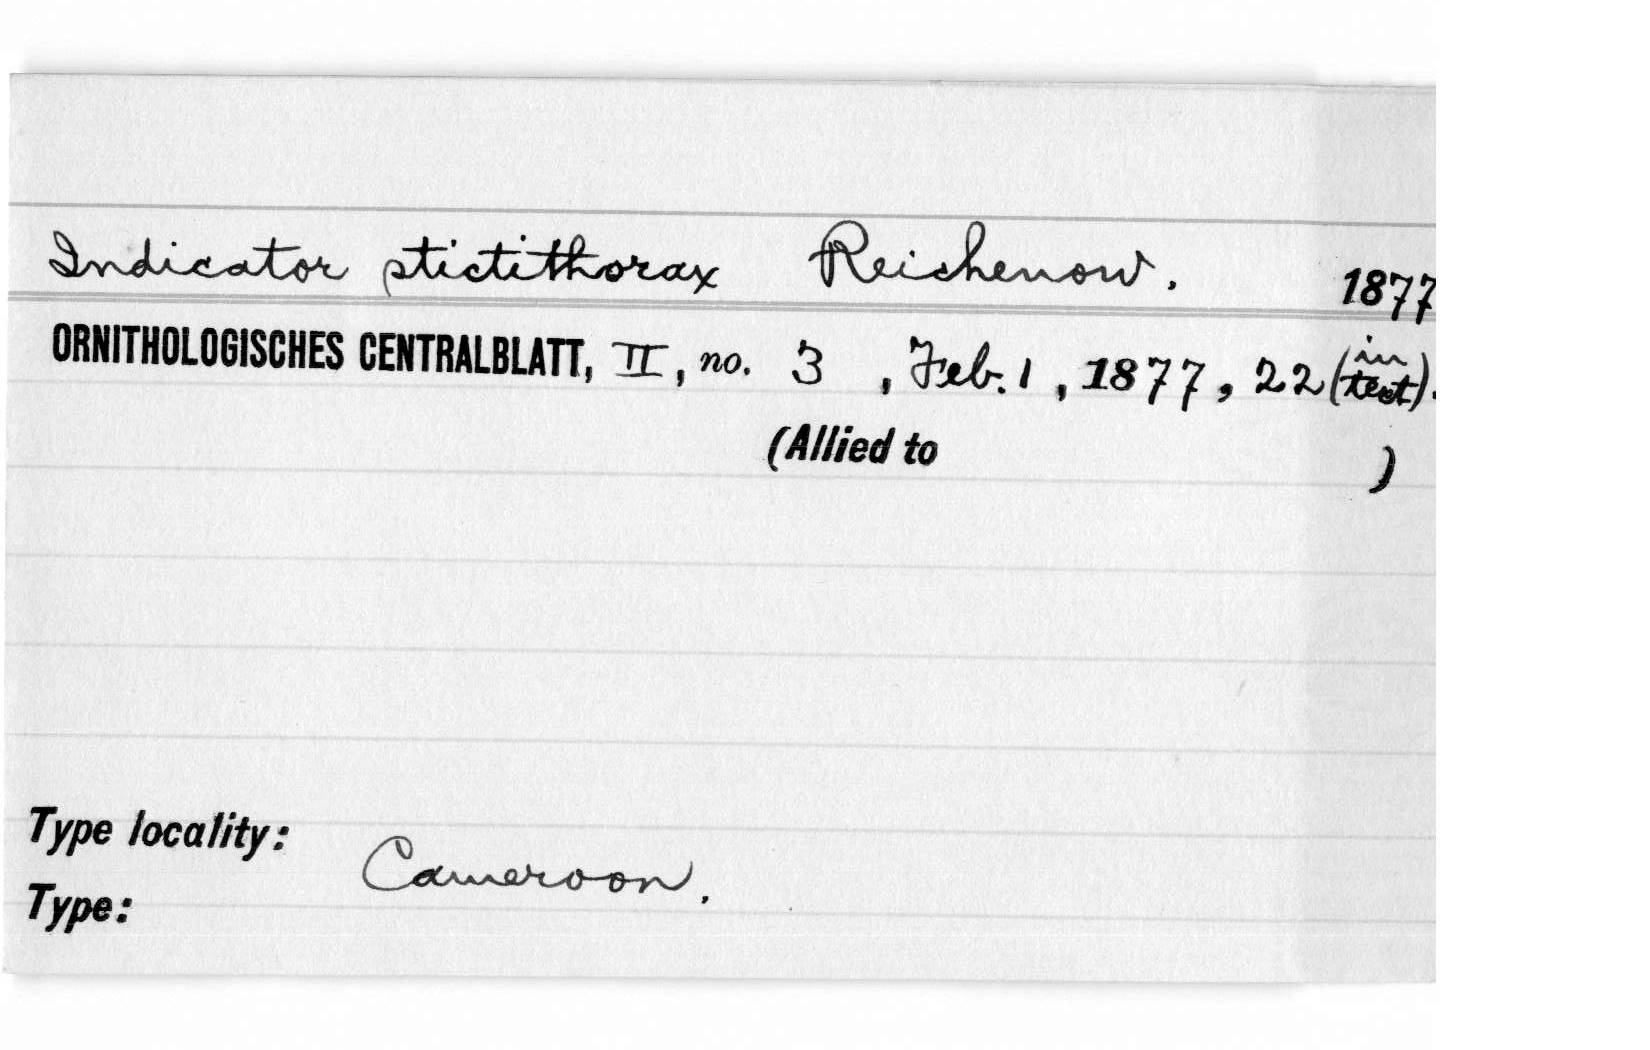 Indicator stictithorax Reichenow. 1877
ORNITHOLOGISCHES CENTRALBLATT, II, no. 3, Feb. 1, 1877, 22 (in text).
(Allied to )
Type locality: Cameroon.
Type: